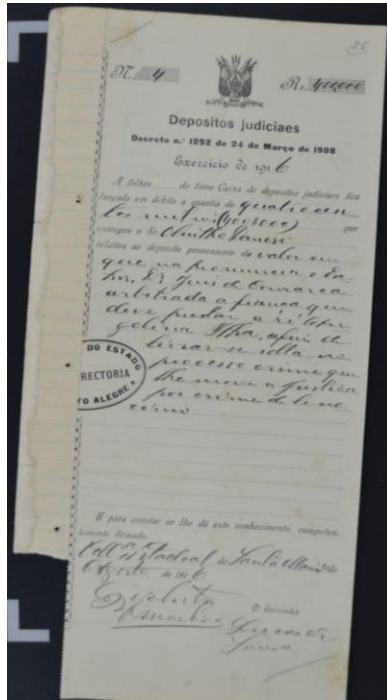 25
N. 4 Rs. 400$000
Depositos judiciaes
Decreto n.º 1292 de 24 de Março de 1908
Exercicio de 1916
A folhas do livro Caixa de depositos judiciaes fica
lançada em debito a quantia de quatrocen
tos mil reis (400$000) que
entregou o Sr.
relativa ao deposito proveniente do valor em
que na pronuncia o Ex
mo. Sr. Dr. Juiz da Comarca
arbitrada a fiança que
deve prestar a ré
Ilha, afim de
livrar-se solta no
processo crime que
lhe move a Justiça
por crime de leno
cinio
DO ESTADO
DIRECTORIA
PORTO ALEGRE
E para constar se lhe dá este conhecimento, competen-
temente firmado.
Estadoal de Santa Maria
de 1916
O Escrivão
Souza